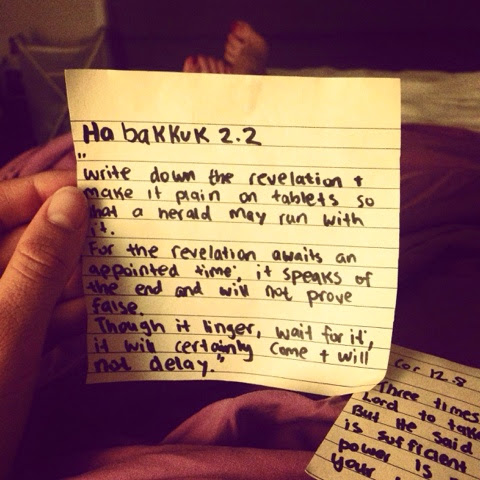 Habakkuk 2.2
"
Write down the revelation +
make it plain on tablets so
that a herald may run with
it.
For the revelation awaits an
appointed time; it speaks of
the end and will not prove
false.
Though it linger, wait for it;
it will certainly come + will
not delay."
Cor 12.8
Three times
Lord to take
But He said
is sufficient
power is
your